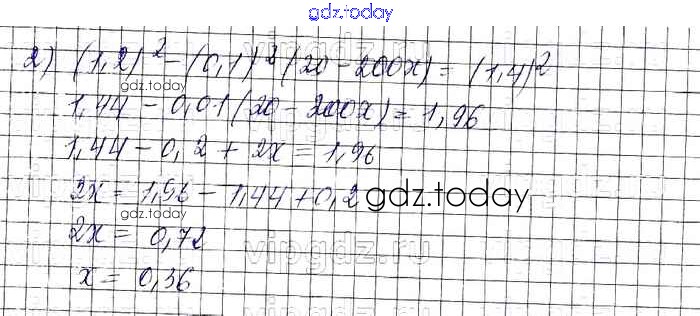 gdz.today
2) (1,2)² - (0,1)² (20 - 200x) = (1,4)²
gdz.today
1,44 - 0,01 (20 - 200x) = 1,96
1,44 - 0,2 + 2x = 1,96
2x = 1,96 - 1,44 + 0,2 gdz.today
gdz.today
2x = 0,72
vipgdz.ru
x = 0,36